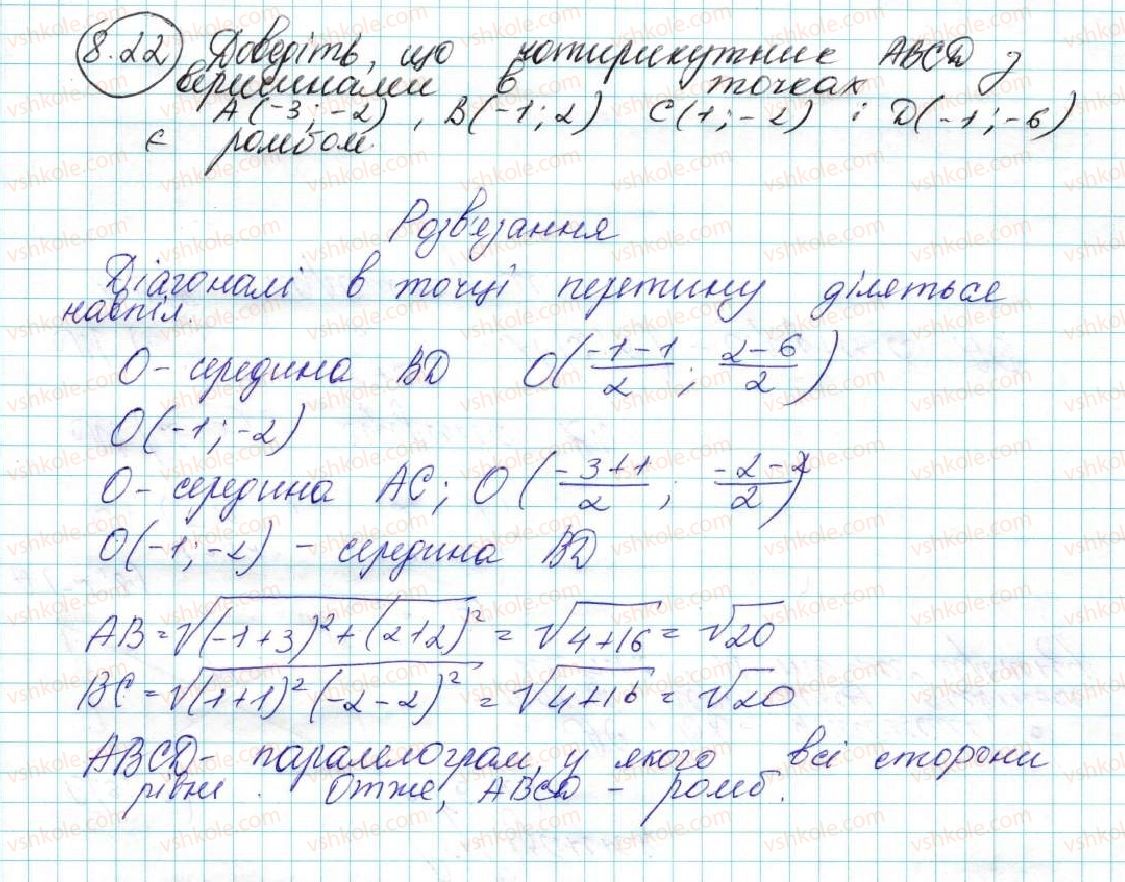 8.22 Доведіть, що чотирикутник ABCD з
вершинами в точках
A(-3; -2), B(-1; 2) C(1; -2) і D(-1; -6)
є ромбом.
Розв'язання
Діагоналі в точці перетину діляться
навпіл.
O - середина BD O((-1-1)/2; (2-6)/2)
O(-1; -2)
O - середина AC; O((-3+1)/2; (-2-2)/2)
O(-1; -2) - середина BD
AB = √((-1+3)²+(2+2)²) = √(4+16) = √20
BC = √((1+1)²(-2-2)²) = √(4+16) = √20
ABCD - паралелограм, у якого всі сторони
рівні. Отже, ABCD - ромб.